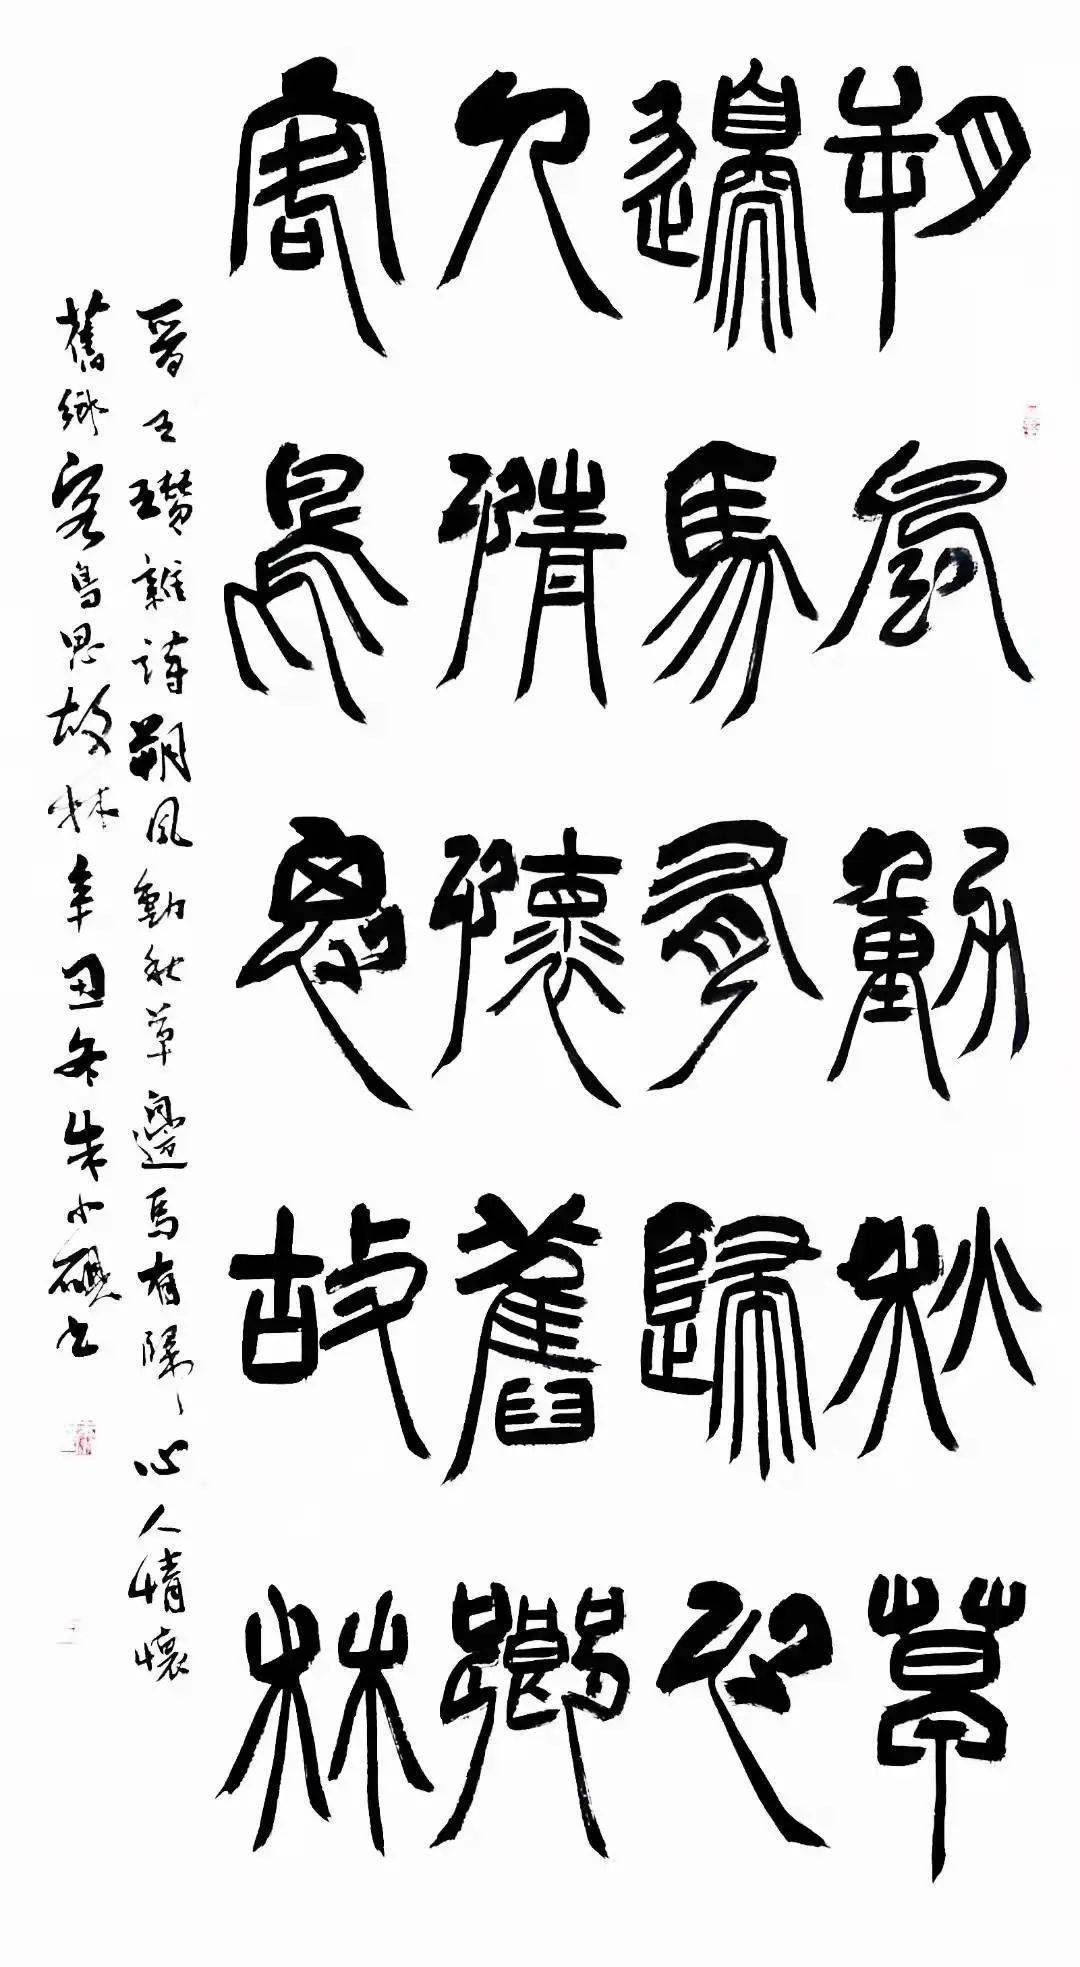 朔風動秋草
邊馬有歸心
人情懷舊鄉
客鳥思故林
晉王瓚雜詩朔風動秋草邊馬有歸心人情懷
舊鄉客鳥思故林辛丑冬朱小礥書